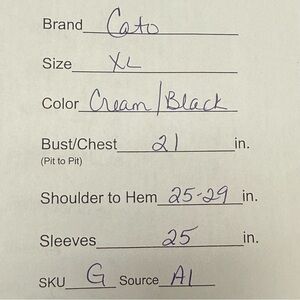 Brand Cato
Size XL
Color Cream/Black
Bust/Chest 21 in.
(Pit to Pit)
Shoulder to Hem 25-29 in.
Sleeves 25 in.
SKU G Source A1